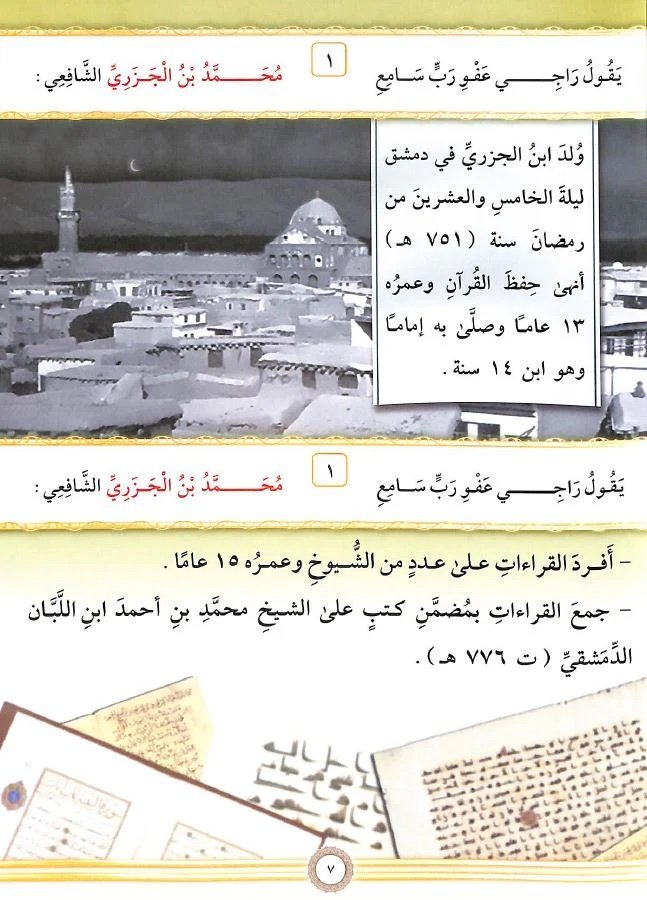 يَقُولُ رَاجِـــــــي عَفْوِ رَبٍّ سَــامِعِ ١ مُحَـــــــمَّدُ بْنُ الْجَزَرِيِّ الشَّافِعِي :
وُلدَ ابنُ الجزريِّ في دمشق
ليلةَ الخامسِ والعشرينَ من
رمضانَ سنة ( ٧٥١ هـ )
أنهىٰ حِفظَ القُرآنِ وعمرُه
١٣ عامـًا وصلَّىٰ به إمامـًا
وهو ابن ١٤ سنة .
يَقُولُ رَاجِـــــــي عَفْوِ رَبٍّ سَــامِعِ ١ مُحَـــــــمَّدُ بْنُ الْجَزَرِيِّ الشَّافِعِي :
– أَفـردَ القراءاتِ علىٰ عددٍ من الشُّيوخِ وعمـرُه ١٥ عامًا .
– جمعَ القراءاتِ بمُضمَّنِ كتبٍ علىٰ الشيخِ محمَّدِ بنِ أحمدَ ابنِ اللَّبَّان
الدِّمَشقيِّ ( ت ٧٧٦ هـ ) .
٧